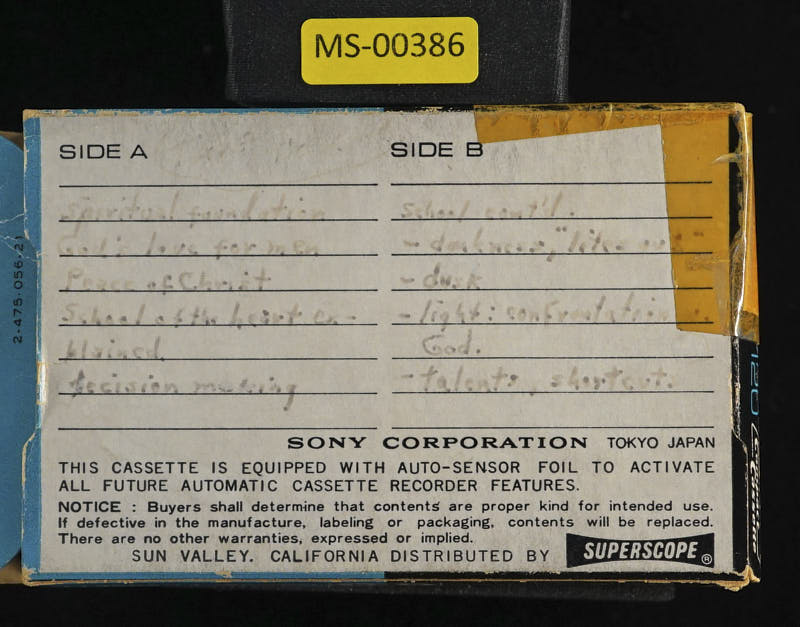 MS-00386
SIDE A
Spiritual foundation
God's love for men
Peace of Christ
School of the heart ex-
plained
decision making
SIDE B
School cont'd.
- darkness, "lites out"
- dusk
- light: confrontation
God.
- talents, shortcut.
SONY CORPORATION TOKYO JAPAN
THIS CASSETTE IS EQUIPPED WITH AUTO-SENSOR FOIL TO ACTIVATE
ALL FUTURE AUTOMATIC CASSETTE RECORDER FEATURES.
NOTICE : Buyers shall determine that contents are proper kind for intended use.
If defective in the manufacture, labeling or packaging, contents will be replaced.
There are no other warranties, expressed or implied.
SUN VALLEY. CALIFORNIA DISTRIBUTED BY SUPERSCOPE®
2-475-056-21
120